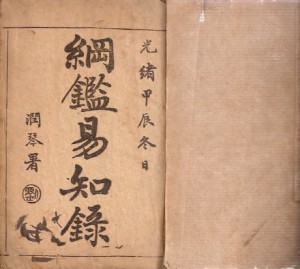 光緒甲辰冬日
綱鑑易知錄
潤琴署